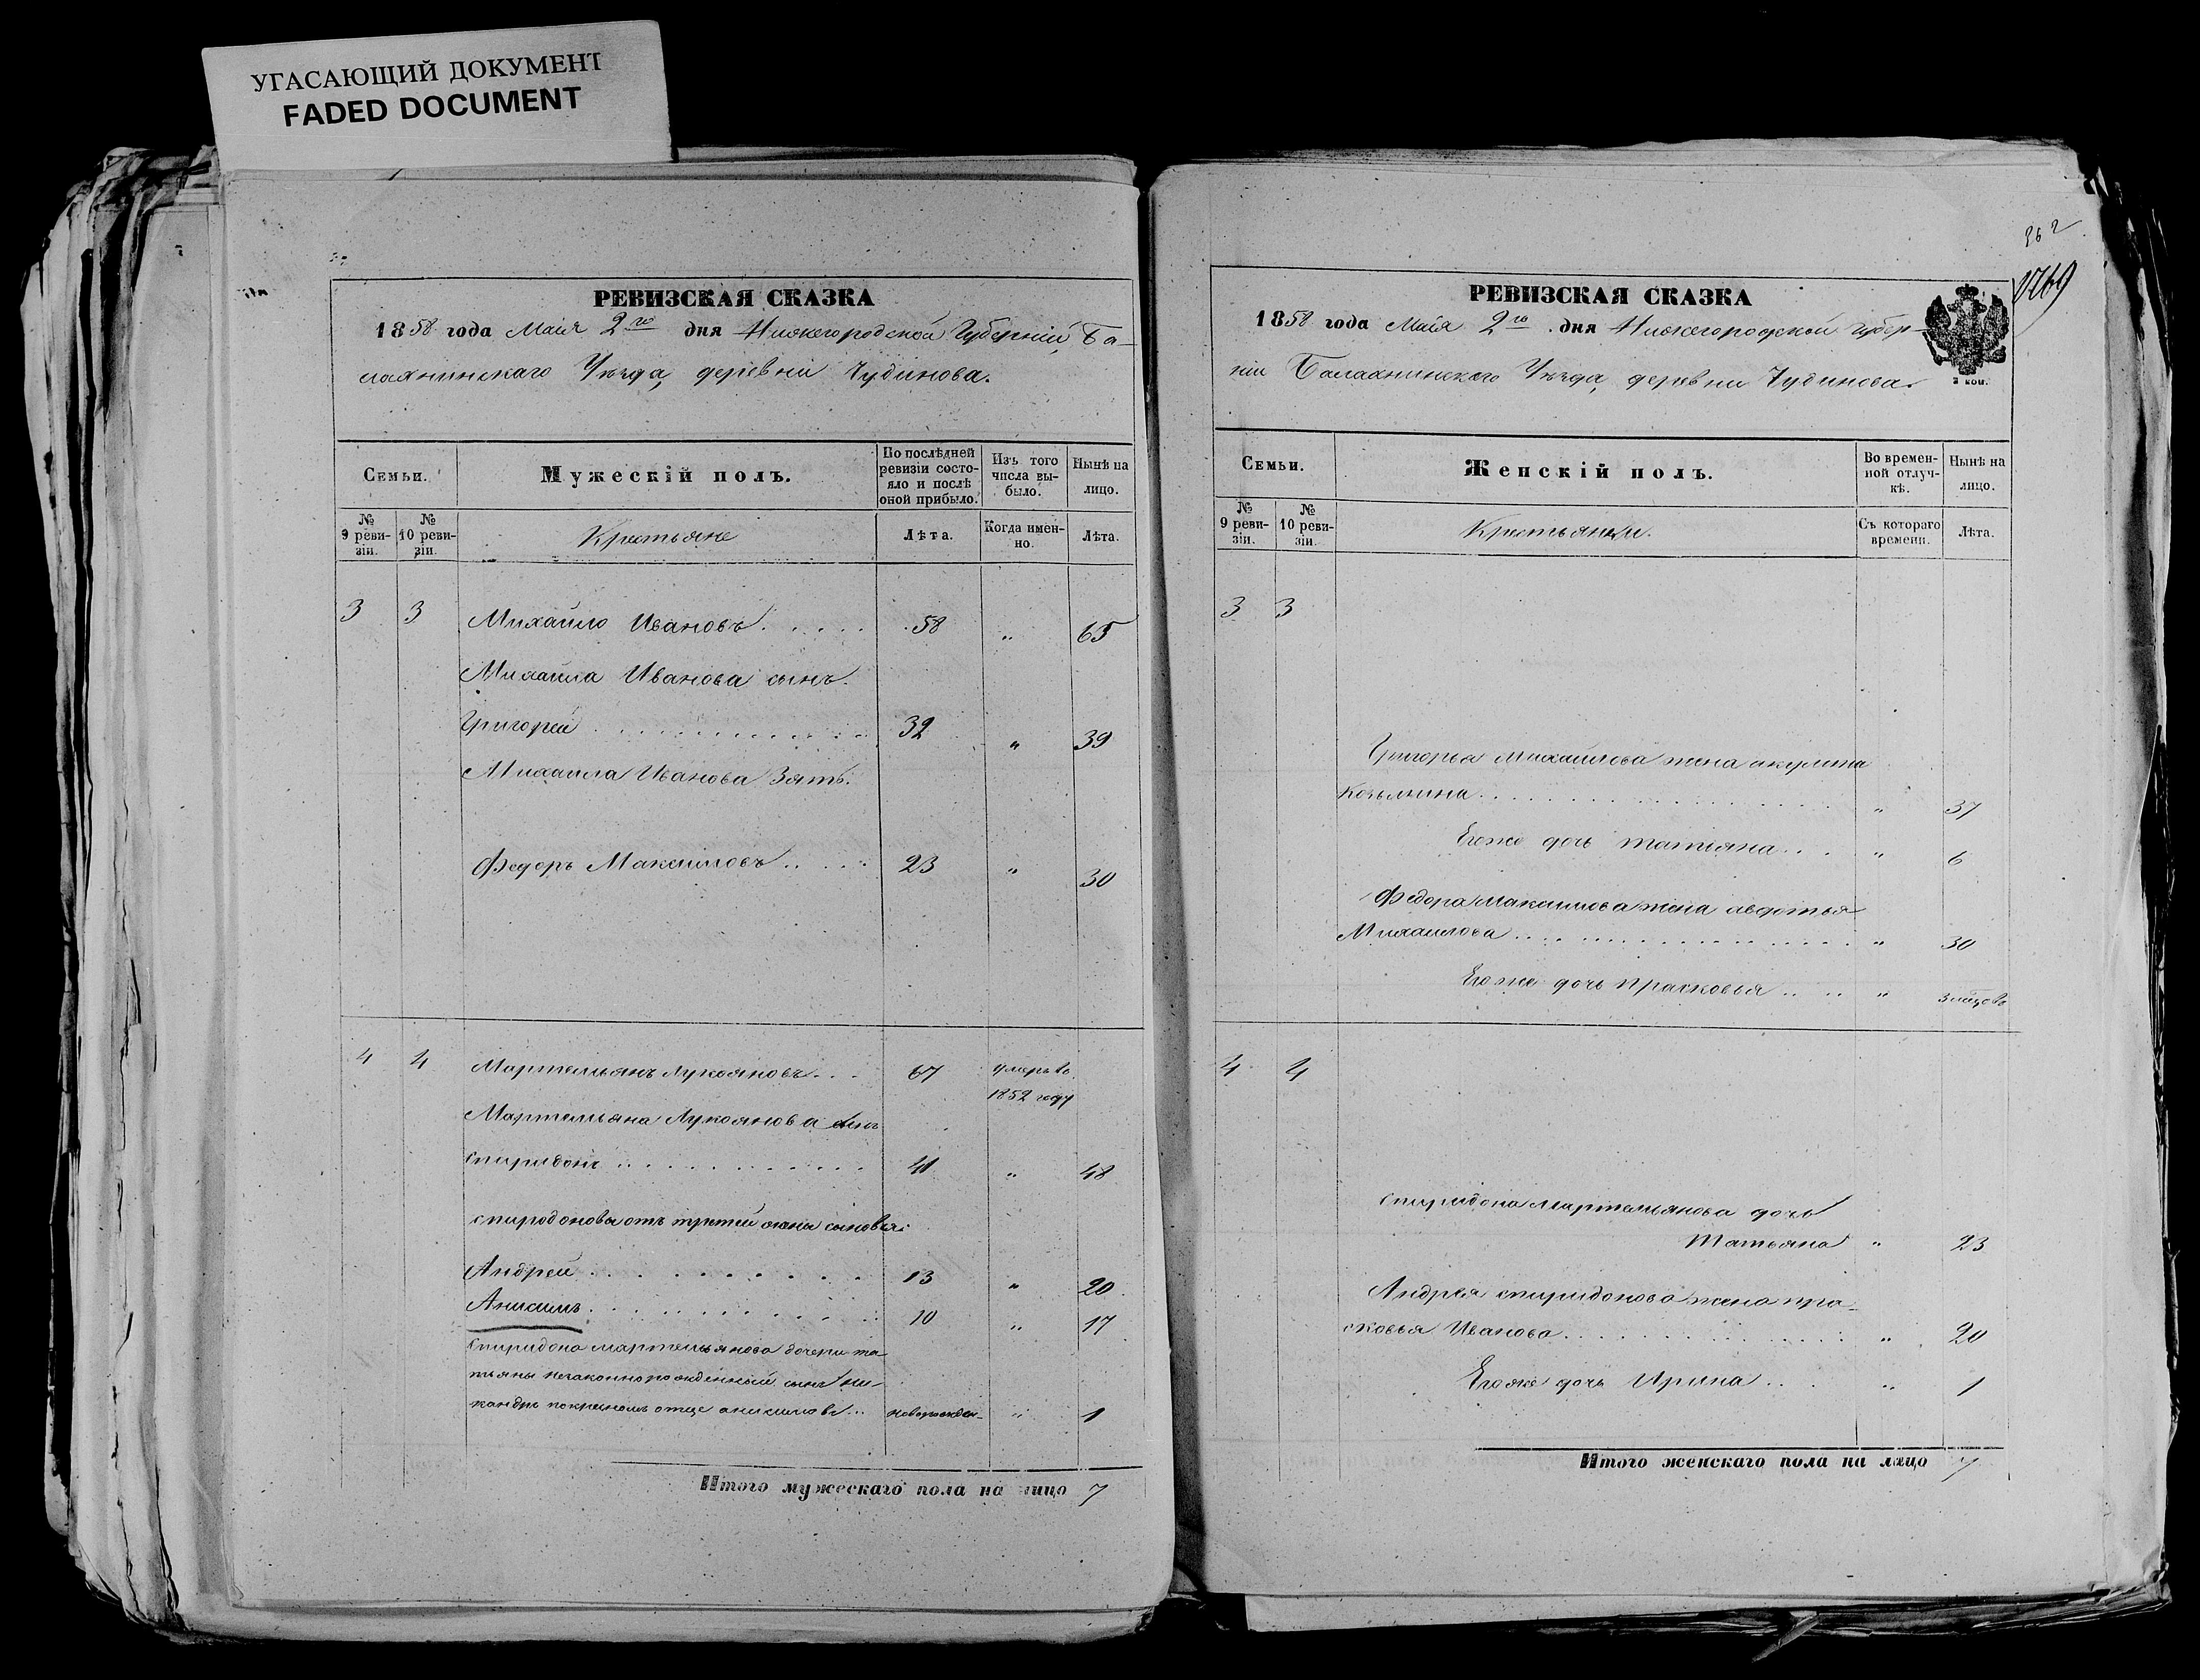 УГАСАЮЩИЙ ДОКУМЕНТ
FADED DOCUMENT
РЕВИЗСКАЯ СКАЗКА
1858 года Майя 2го дня Нижегородской Губерніи, Ба-
лахнинскаго Уѣзда, деревни Чудинова.
Семьи.
Мужескій полъ.
По послѣдней ревизіи состояло и послѣ оной прибыло.
Изъ того числа выбыло.
Нынѣ на лицо.
№ 9 ревизіи.
№ 10 ревизіи.
Крестьяне
Лѣта.
Когда именно.
Лѣта.
3 3 Михайло Ивановъ . . . . . 58 " 65
Михайла Иванова сынъ.
Григорей . . . . . . . . . . . . 32 " 39
Михаила Иванова Зять.
Федоръ Максимовъ . . . . . 23 " 30
4 4 Мартемьянъ Лукояновъ . . . 67 умеръ въ
1852 году
Мартемьяна Лукоянова сынъ
Спиридонъ . . . . . . . . . . . 41 " 48
Спиродонова отъ третей жены сыновья:
Андрей . . . . . . . . . . 13 " 20
Анисимъ . . . . . . . . . . 10 " 17
Спиридона Мартемьянова дочери та-
тьяны незаконнорожденный сынъ Ни-
кандръ по крестномъ отце анисимовъ . . . новорожден- " 1
Итого мужескаго пола на лицо 7
362
1769
РЕВИЗСКАЯ СКАЗКА
1858 года Майя 2го дня Нижегородской Губер-
ніи Балахнинскаго Уѣзда, деревни Чудинова.
3 коп.
Семьи.
Женскій полъ.
Во временной отлучкѣ.
Нынѣ на лицо.
№ 9 ревизіи.
№ 10 ревизіи.
Крестьянки.
Съ котораго времени.
Лѣта.
3 3
Григорья Михаилова жена акулина
Козьмина . . . . . . . . . . . . . . . . " 37
Егоже дочь татьяна . . . " 6
Федора Максимова жена авдотья
Михаилова . . . . . . . . . . . . . . . . " 30
Егоже дочь прасковья . . . . " 3 мѣцовъ
4 4
Спиридона Мартемьянова дочь
Татьяна " 23
Андрея спиридонова жена пра-
сковья Иванова . . . . . . . . . . . . . . " 20
Егоже дочь Ирина . . . " 1
Итого женскаго пола на лицо 7